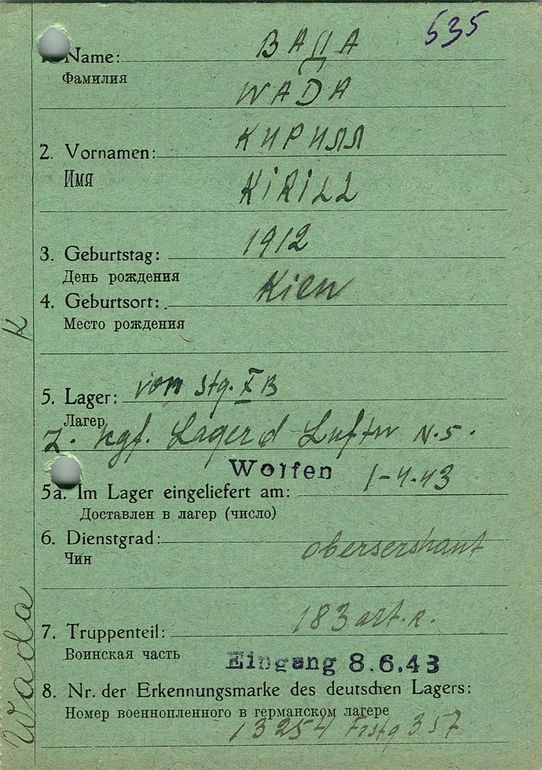 535
1. Name: ВАДА
Фамилия
WADA
КИРИЛЛ
2. Vornamen:
Имя
KiRiLL
3. Geburtstag: 1912
День рождения
4. Geburtsort: Kiew
Место рождения
5. Lager: vom Stg. X B
Лагер
z. kgf. Lager d Luftw N. 5.
Wolfen
5a. Im Lager eingeliefert am: 1-4.43
Доставлен в лагер (число)
6. Dienstgrad: obersershant
Чин
7. Truppenteil: 183 art. R.
Воинская часть
Eingang 8.6.43
8. Nr. der Erkennungsmarke des deutschen Lagers:
Номер военнопленного в германском лагере
13254 357
K
Wada